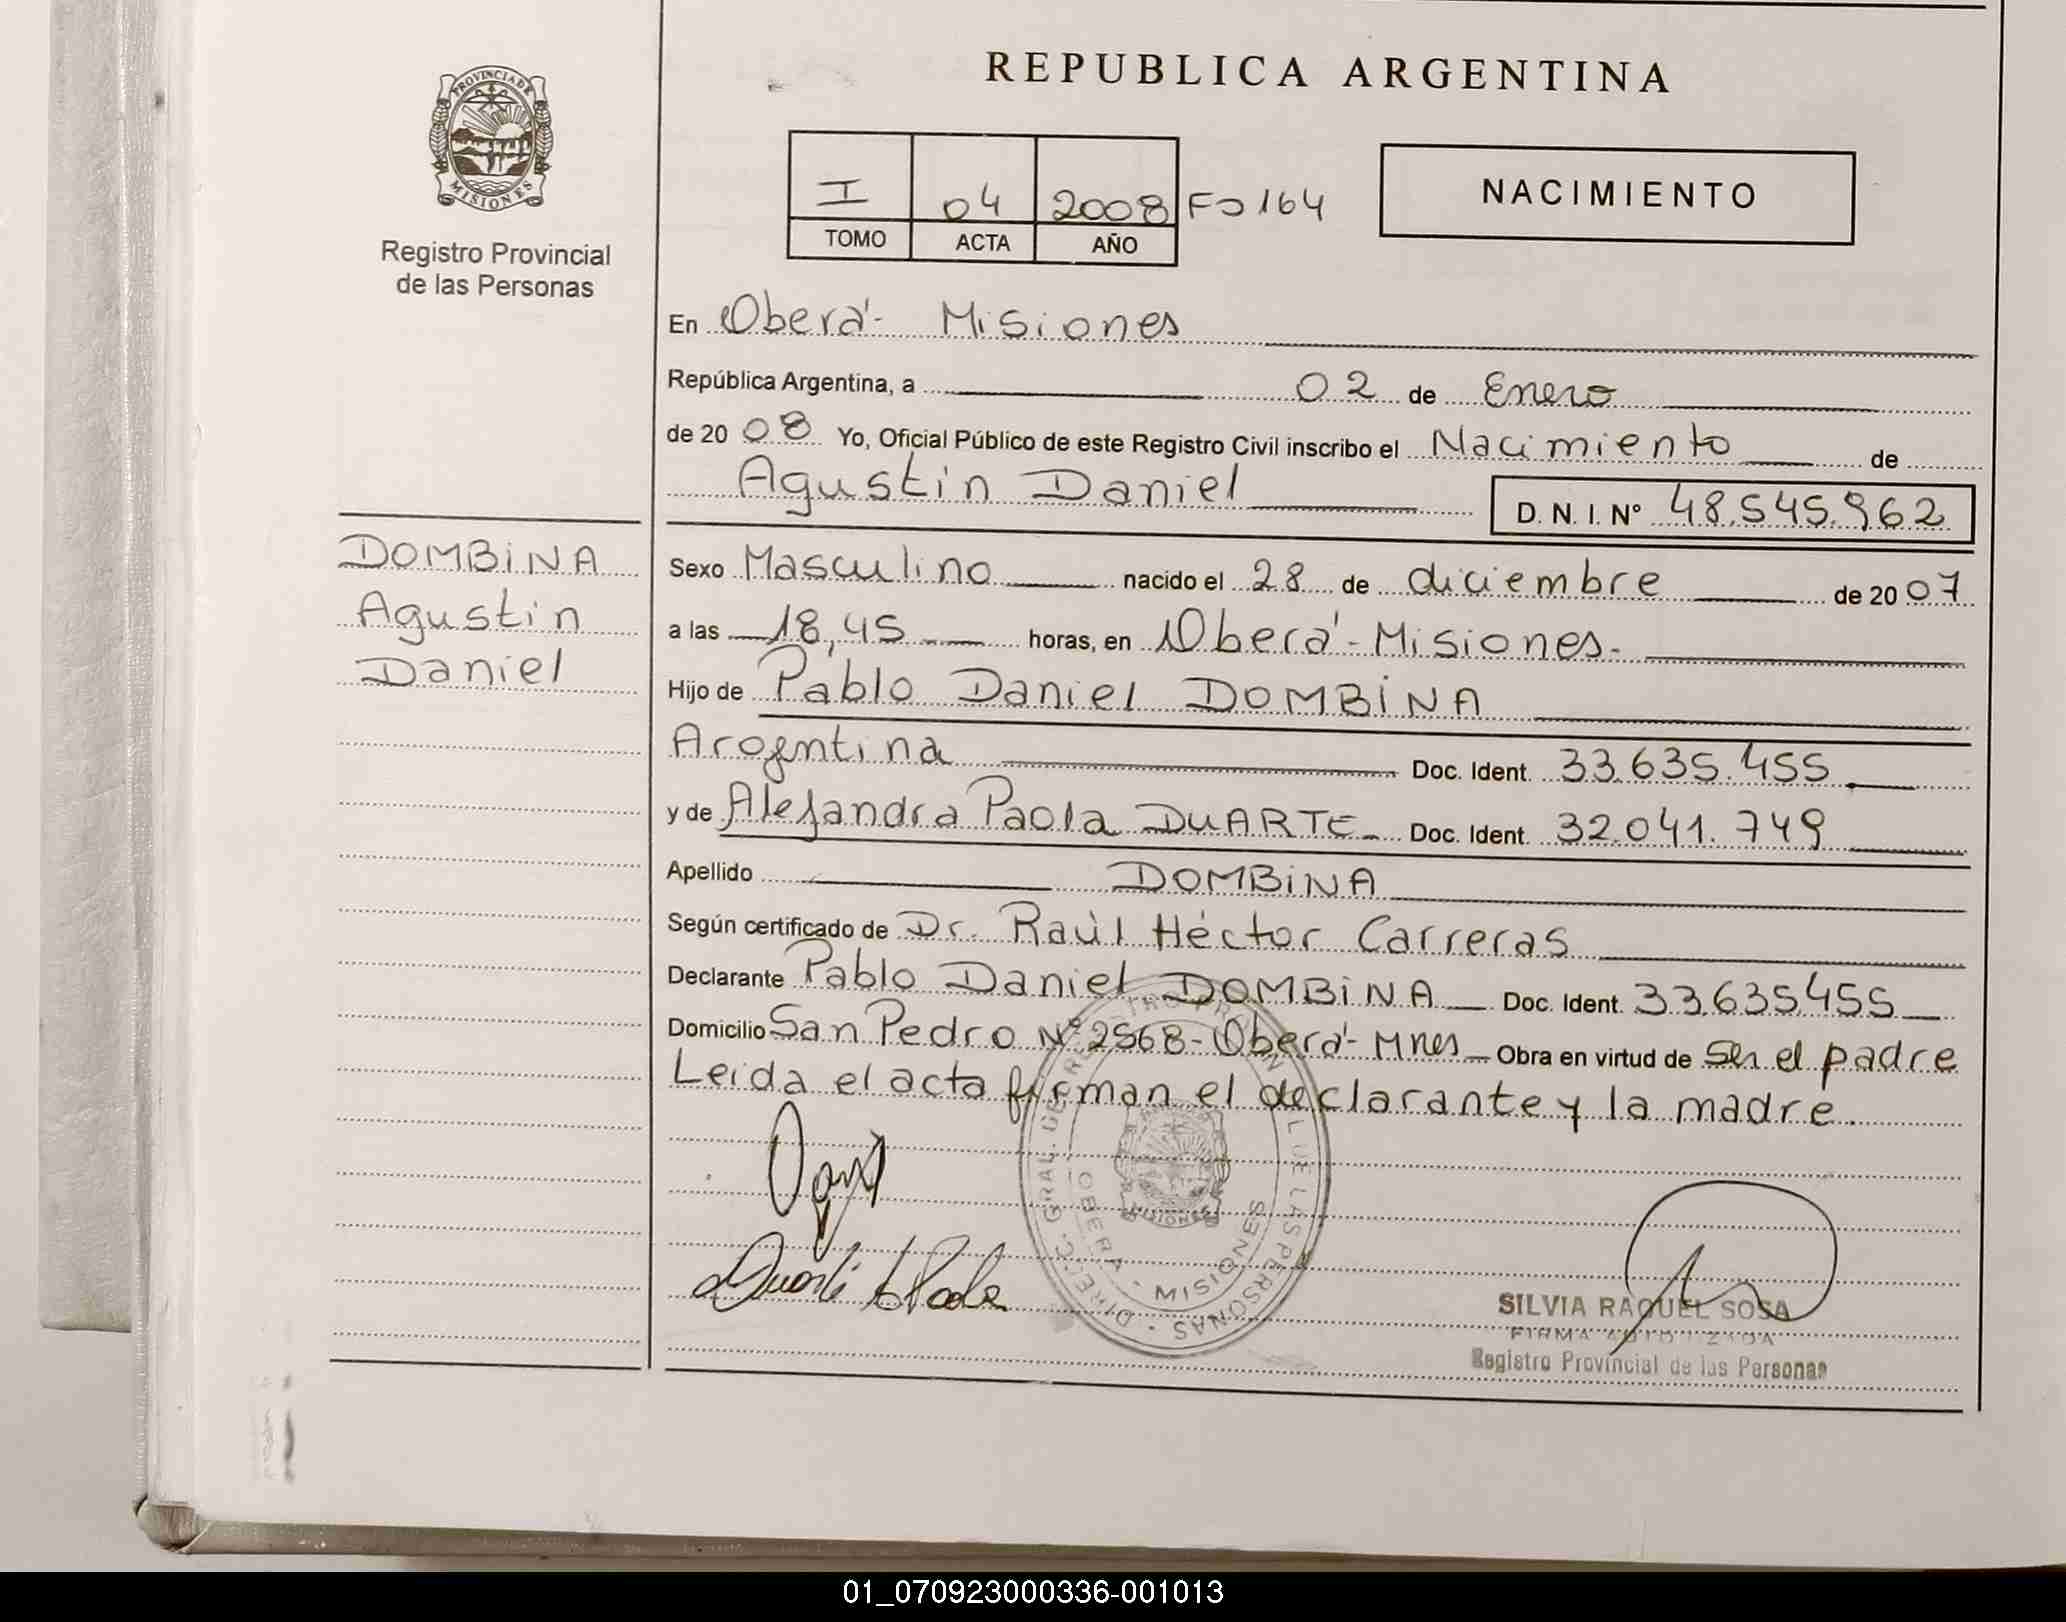 REPUBLICA ARGENTINA
PROVINCIA DE
MISIONES
Registro Provincial
de las Personas
I 04 2008 Fo 164
TOMO ACTA AÑO
NACIMIENTO
En Oberá - Misiones
República Argentina, a 02 de Enero
de 20 08 Yo, Oficial Público de este Registro Civil inscribo el Nacimiento de
Agustin Daniel D. N. I. Nº 48.545.962
DOMBiNA
Agustin
Daniel
Sexo Masculino nacido el 28 de diciembre de 20 07
a las 18,45 horas, en Oberá - Misiones.
Hijo de Pablo Daniel DOMBiNA
Argentina Doc. Ident. 33.635.455
y de Alejandra Paola DUARTE Doc. Ident. 32.041.749
Apellido DOMBiNA
Según certificado de Dr. Raùl Héctor Carreras
Declarante Pablo Daniel DOMBiNA Doc. Ident. 33.635.455
Domicilio San Pedro Nº 2568 - Oberá - Mnes Obra en virtud de ser el padre
Leida el acta firman el declarante y la madre.
DIREC. GRAL. DE REGISTRO PROVINCIAL DE LAS PERSONAS
OBERA - MISIONES
MISIONES
Duarte A Paola
SILVIA RAQUEL SOSA
FIRMA AUTORIZADA
Registro Provincial de las Personas
01_070923000336-001013